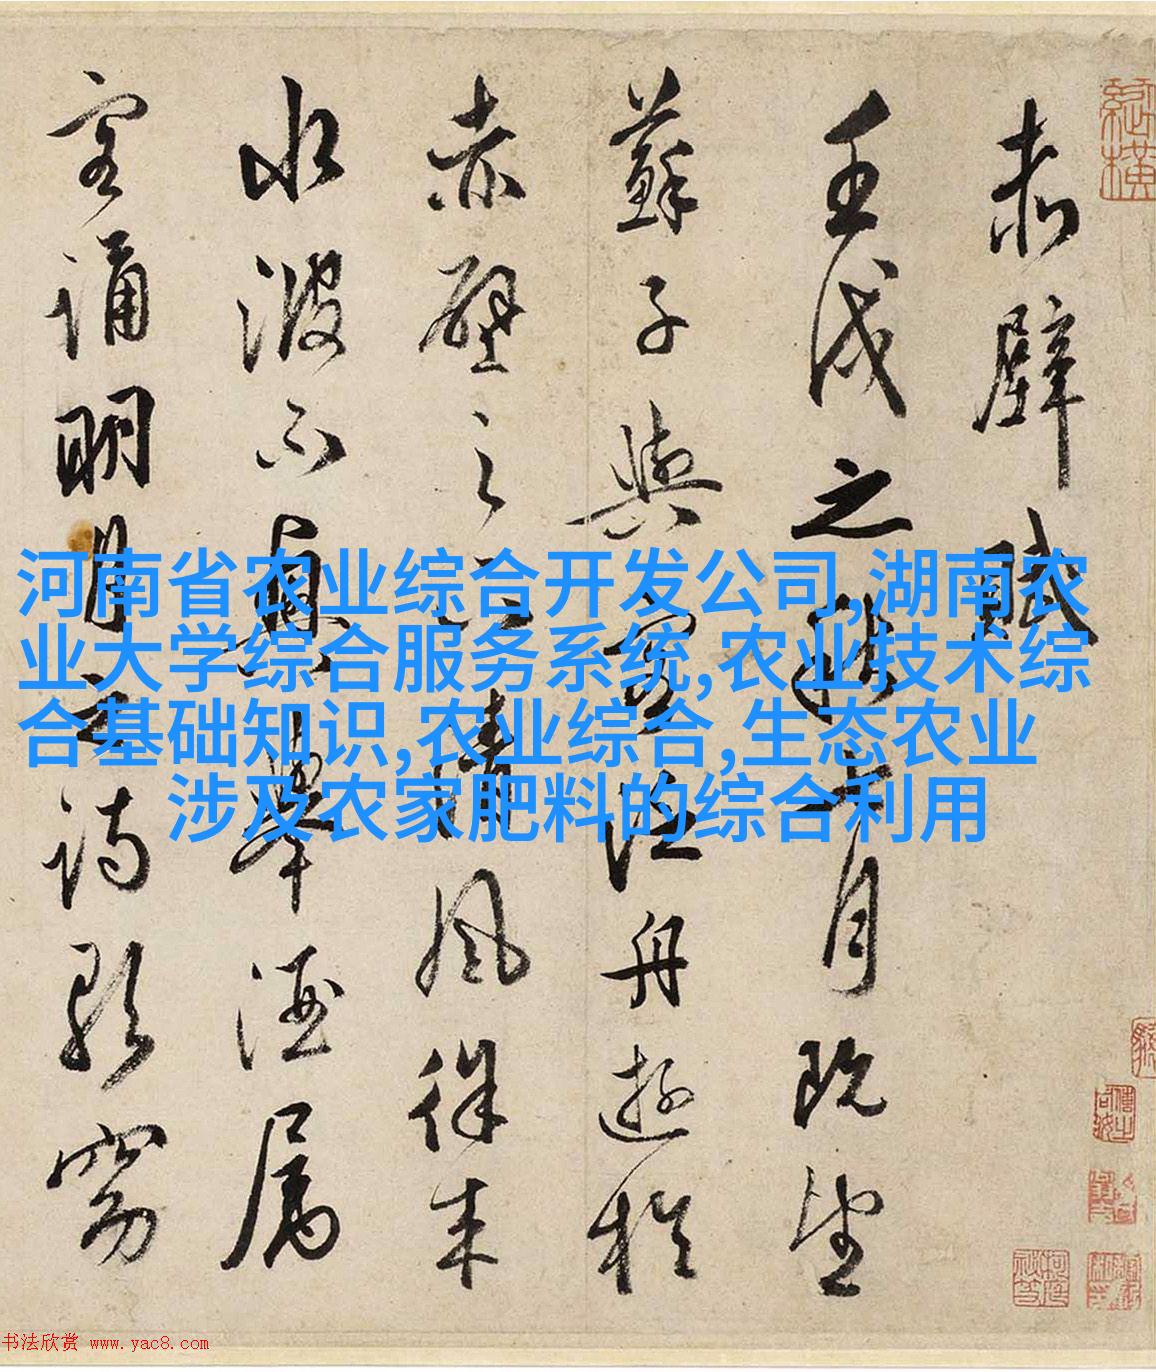 赤壁賦
壬戌之秋七月既望
蘇子與客泛舟遊於
赤壁之下清風徐來
水波不興舉酒屬
客誦明月之詩歌窈
河南省农业综合开发公司,湖南农
业大学综合服务系统,农业技术综
合基础知识,农业综合,生态农业
涉及农家肥料的综合利用
书法欣赏 www.yac8.com